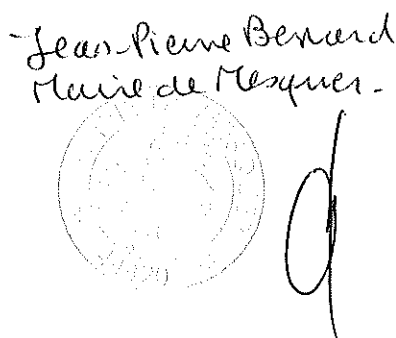 Jean-Pierre Bernard
Maire de Mesquer.